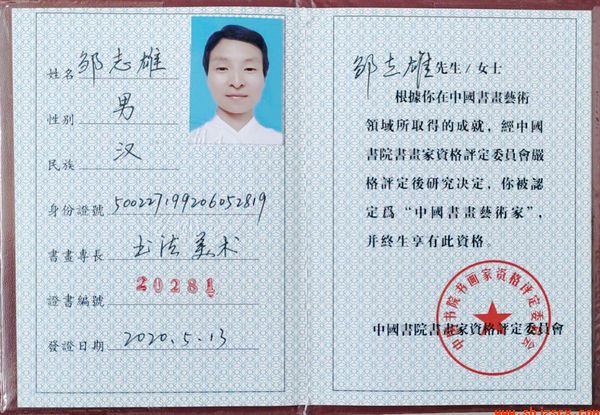 姓名 邹志雄
性别 男
民族 汉
身份證號 500227199206052819
書畫專長 书法美术
證書編號 20281
發證日期 2020.5.13
邹志雄先生/女士
根據你在中國書畫藝術
領域所取得的成就，經中國
書院書畫家資格評定委員會嚴
格評定後研究决定，你被認
定爲“中國書畫藝術家”，
并終生享有此資格。
中國書院書畫家資格評定委員會
中国书院书画家资格评定委员会